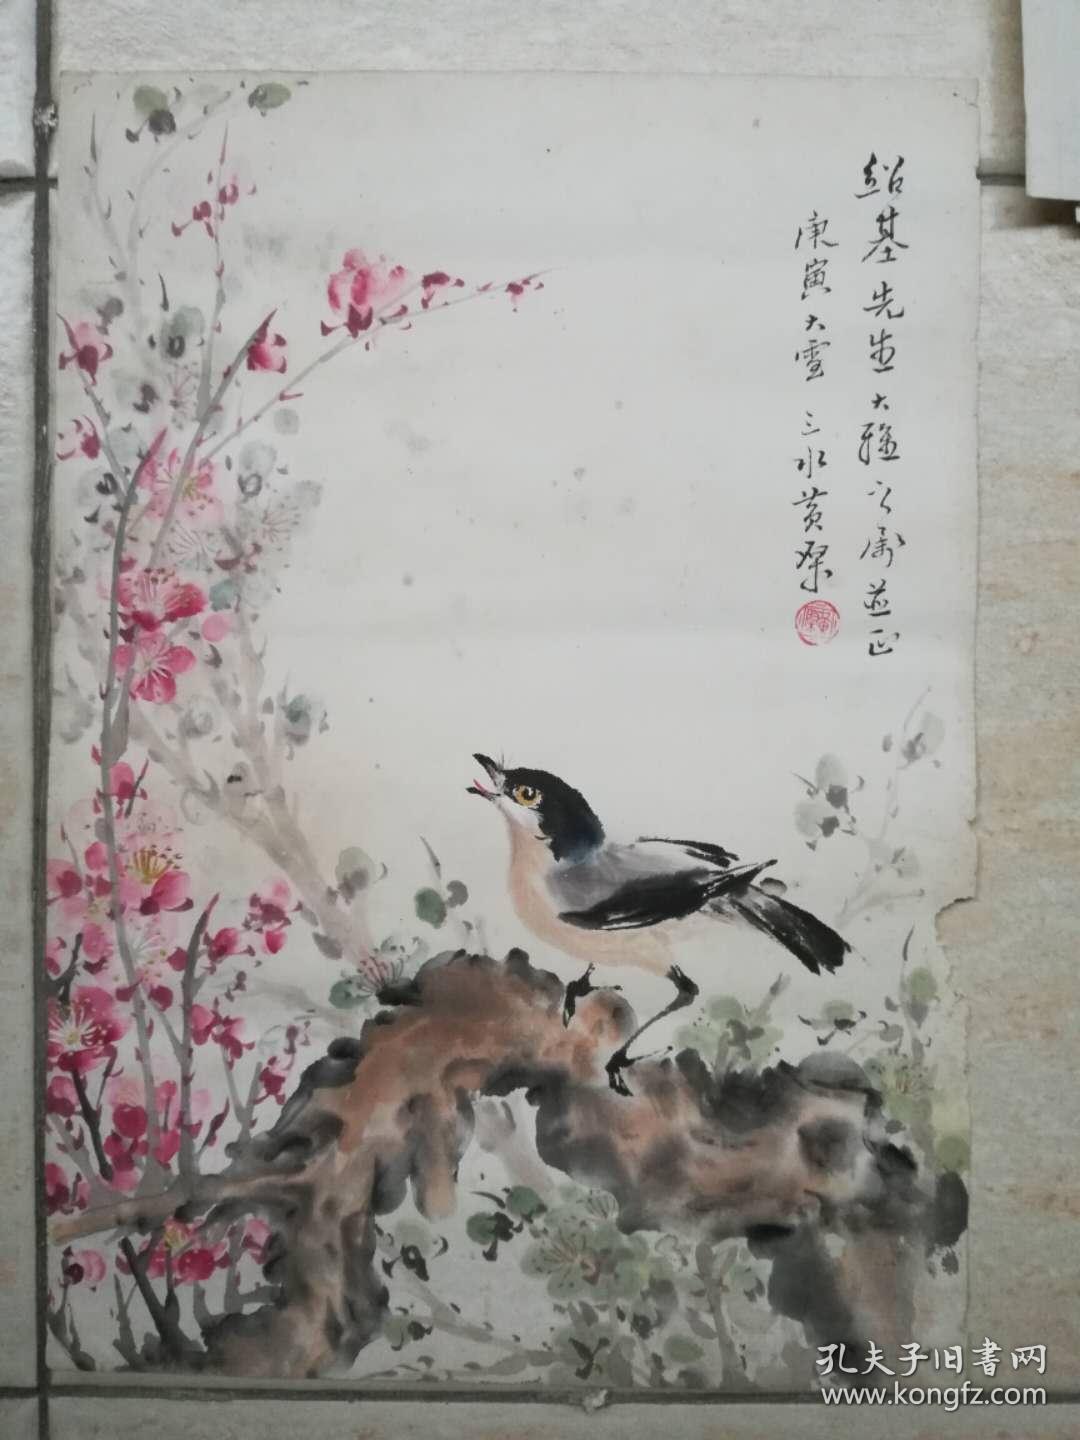 紹基先生大雅之属並正
庚寅大雪 三水黄犖
孔夫子旧書网
www.kongfz.com